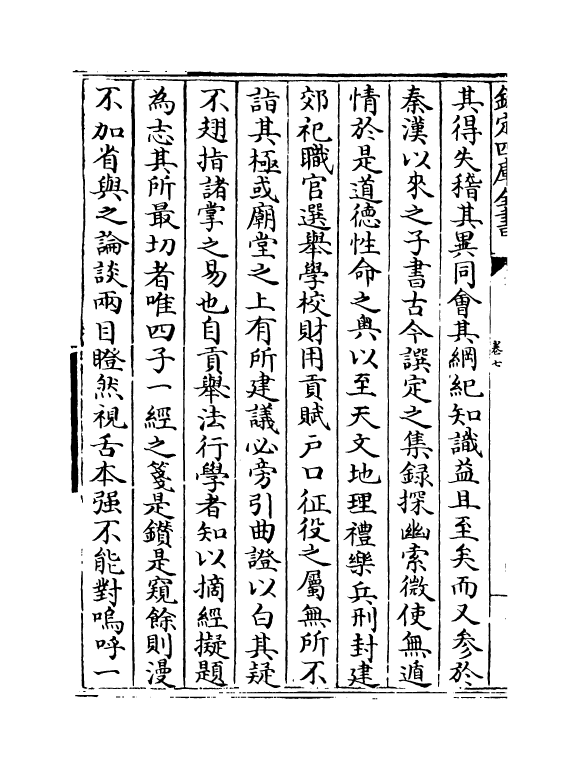 欽定四庫全書
卷七
其得失稽其異同會其綱紀知識益且至矣而又參於
秦漢以來之子書古今譔定之集錄探幽索微使無遁
情於是道德性命之奧以至天文地理禮樂兵刑封建
郊祀職官選舉學校財用貢賦戸口征役之屬無所不
詣其極或廟堂之上有所建議必旁引曲證以白其疑
不翅指諸掌之易也自貢舉法行學者知以摘經擬題
為志其所最切者唯四子一經之箋是鑚是窺餘則漫
不加省與之論談兩目瞪然視舌本强不能對嗚呼一